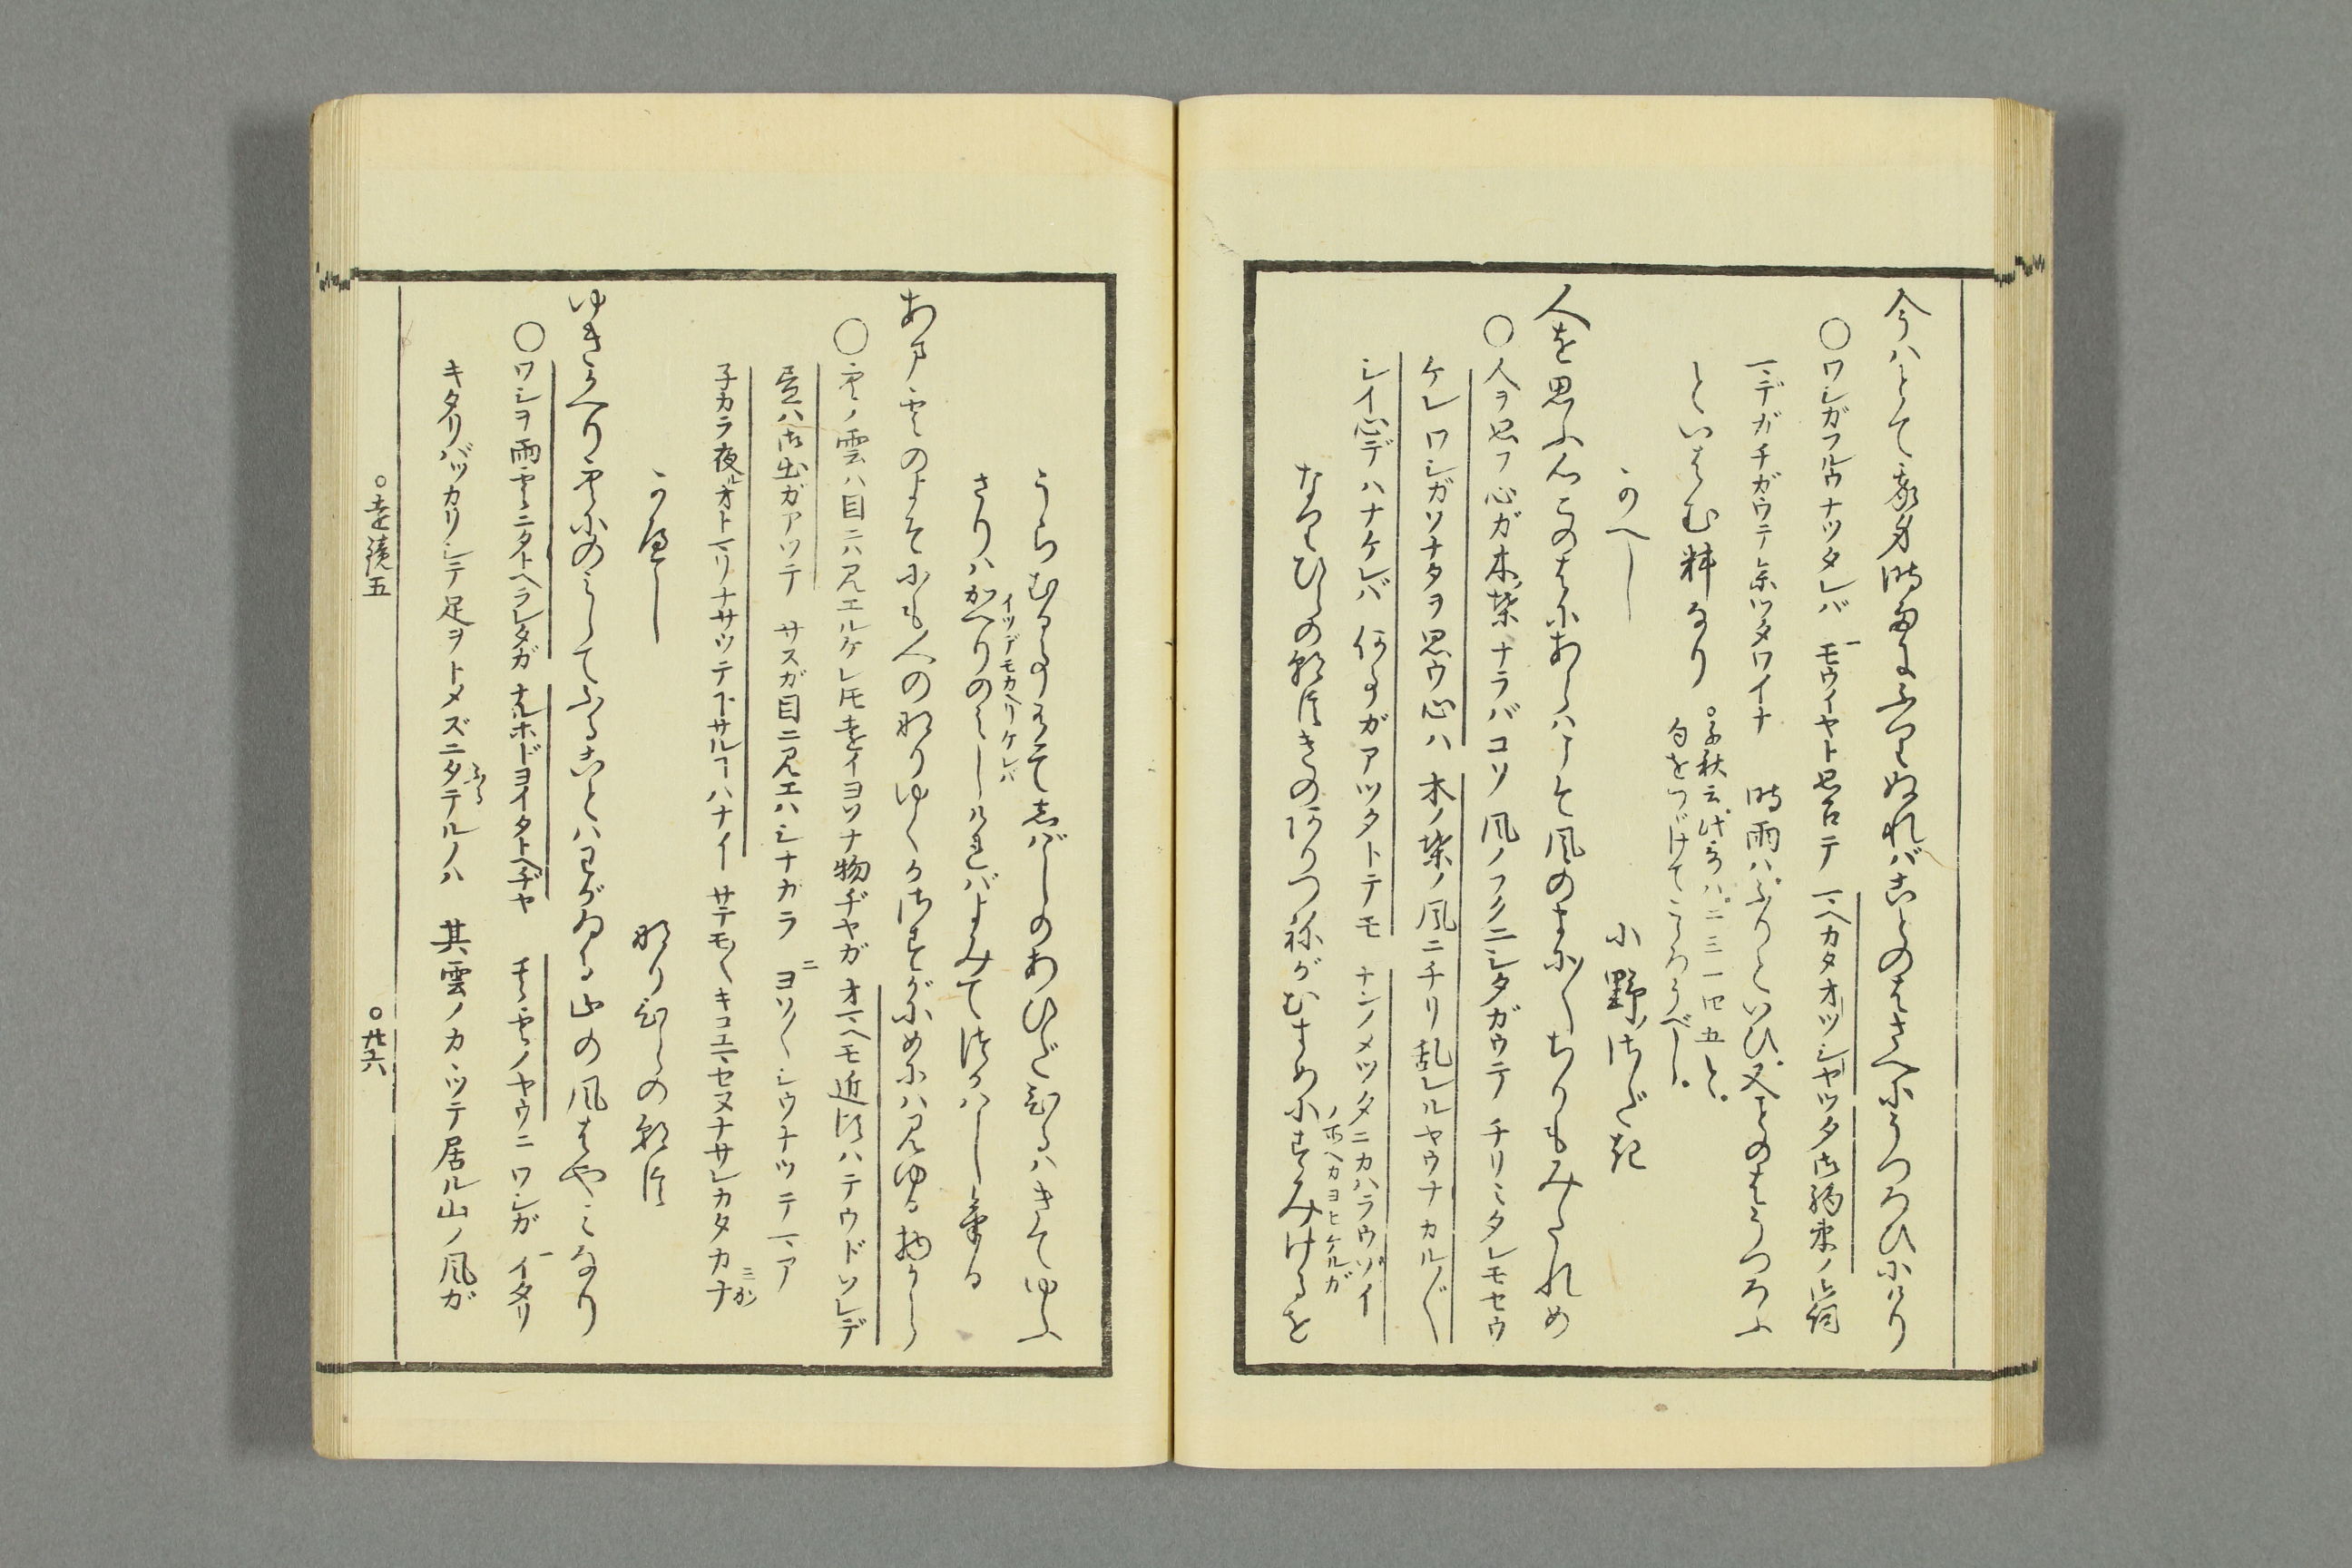 今ハとて我身時雨にふりぬれバことのはさへにうつろひにけり
○ワシガフルウナツタレバ モウイヤト思召テ マヘカタオツシヤツタ御約束ノ御詞
マデガチガウテ来タワイナ 時雨ハふりといひ又ことのはうつろふ
といはむ料なり ○千秋云此哥ハ二三一四五と
句をつゞけてこゝろうべし
かへし 小野さだき
人を思ふ心このはにあらバこそ風のまに〳〵ちりもみだれめ
○人ヲ思フ心ガ木ノ葉ナラバコソ 風ノフクニシタガウテ チリミダレモセウ
ケレ ワシガソナタヲ思ウ心ハ 木ノ葉ノ風ニチリ乱レルヤウナ カル〴〵
シイ心デハナケレバ 何事ガアツタトテモ ナンノメツタニカハラウゾイ
なりひらの朝臣きのありつねがむすめにすみけるを
うらむることありてしばしのあひだひるハきてゆふ
さりハかへりのみしけれバよみてつかハしける
イツデモカヘリケレバ
あま雲のよそにも人のなりゆくかさすがにめにハ見ゆる物から
○空ノ雲ハ目ニハ見エルケレドモ遠イヨソナ物ヂヤガ オマヘモ近頃ハテウドソレデ
昼ハ御出ガアツテ サスガ目ニ見エハシナガラ ヨソ〳〵シウナツテ マア
子カラ夜ルオトマリナサツテ下サルコトハナイ サテモ〳〵キコエマセヌナサレカタカナ
かへし なりひらの朝臣
ゆきかへり空にのみしてふることハわがゐる山の風はやみなり
○ワシヲ雨雲ニタトヘラレタガ ナルホドヨイタトヘヂヤ 天雲ノヤウニ ワシガ イタリ
キタリバツカリシテ足ヲトメズニタテルノハ 其雲ノカヽツテ居ル山ノ風ガ
○遠鏡五 ○廿六